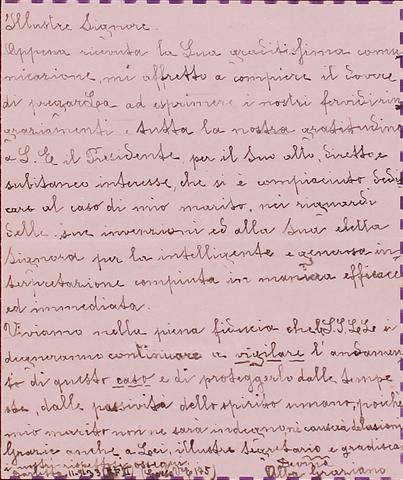 Illustre Signore.
Appena ricevuta la Sua graditissima comu-
nicazione, mi affretto a compiere il dovere
di pregarLa ad esprimere i nostri fervidi rin
graziamenti e tutta la nostra gratitudine
a S. E. il Presidente, per il Suo alto, diretto e
subitaneo interesse, che si è compiaciuto dedi
care al caso di mio marito, nei riguardi
delle sue invenzioni ed alla Sua eletta
Signora per la intelligente e generosa in
terpretazione compiuta in maniera efficace
ed immediata.
Viviamo nella piena fiducia che si
degneranno continuare a vigilare l'andamen
to di questo caso e di proteggerlo dalle tempe
ste, dalle passività dello spirito umano, poichè
mio marito non ne sarà indegno nè causa di delusioni
Grazie anche a Lei, illustre Segretario e gradisca
i nostri rispettosi ossequi.
Graziano